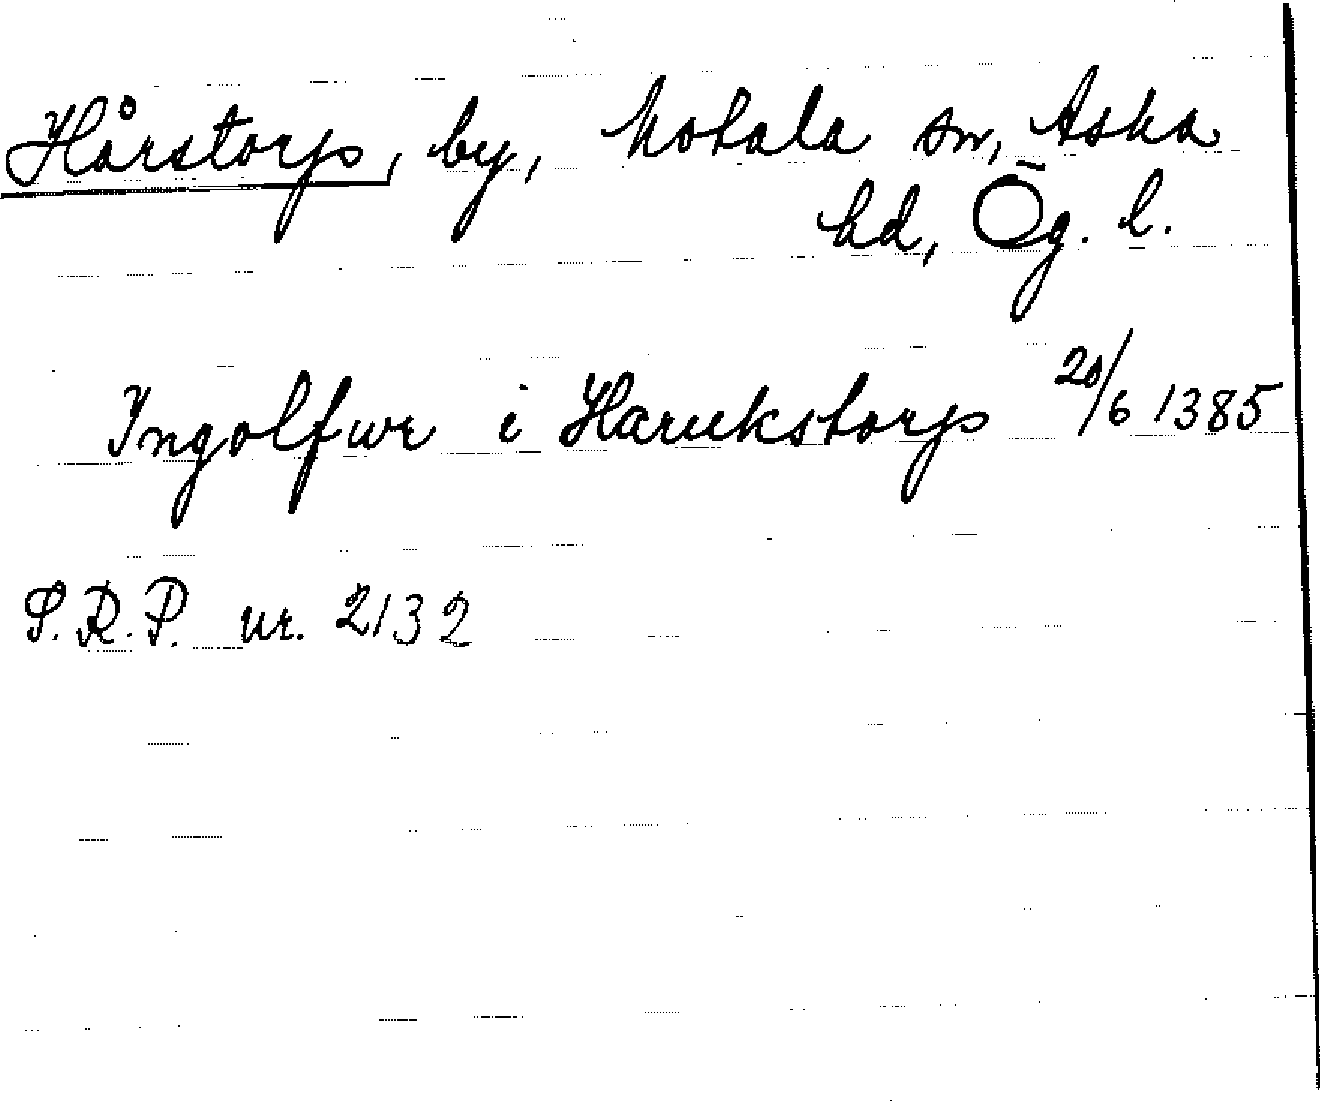 Hårstorp, by, Motala sn, Aska
hd, Ög. l.
Ingolfwr i Harukstorp 20/6 1385
S.R.P. nr. 2132